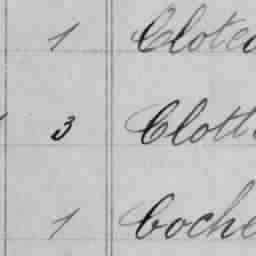 1 Clotea
3 Clott
1 Coche